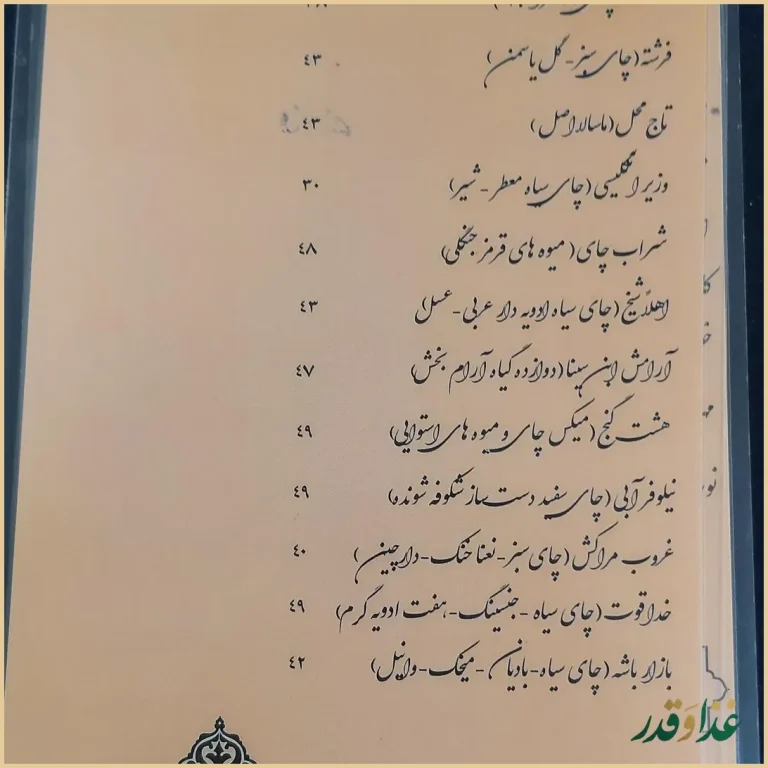 فرشته (چای سبز - گل یاسمن) ٤٣
تاج محل (ماسالا اصل) ٤٣
وزیر انگلیسی (چای سیاه معطر - شیر) ٣٠
شراب چای (میوه های قرمز جنگلی) ٤٨
اهلاً شیخ (چای سیاه ادویه دار عربی - عسل) ٤٣
آرامش ابن سینا (دوازده گیاه آرام بخش) ٤٧
هشت گنج (میکس چای و میوه های استوایی) ٤٩
نیلوفر آبی (چای سفید دست ساز شکوفه شونده) ٤٩
غروب مراکش (چای سبز - نعنا خنک - دارچین) ٤٠
خداقوت (چای سیاه - جنسینگ - هفت ادویه گرم) ٤٩
بازار باشه (چای سیاه - بادیان - میخک - وانیل) ٤٢
غذا و قدر